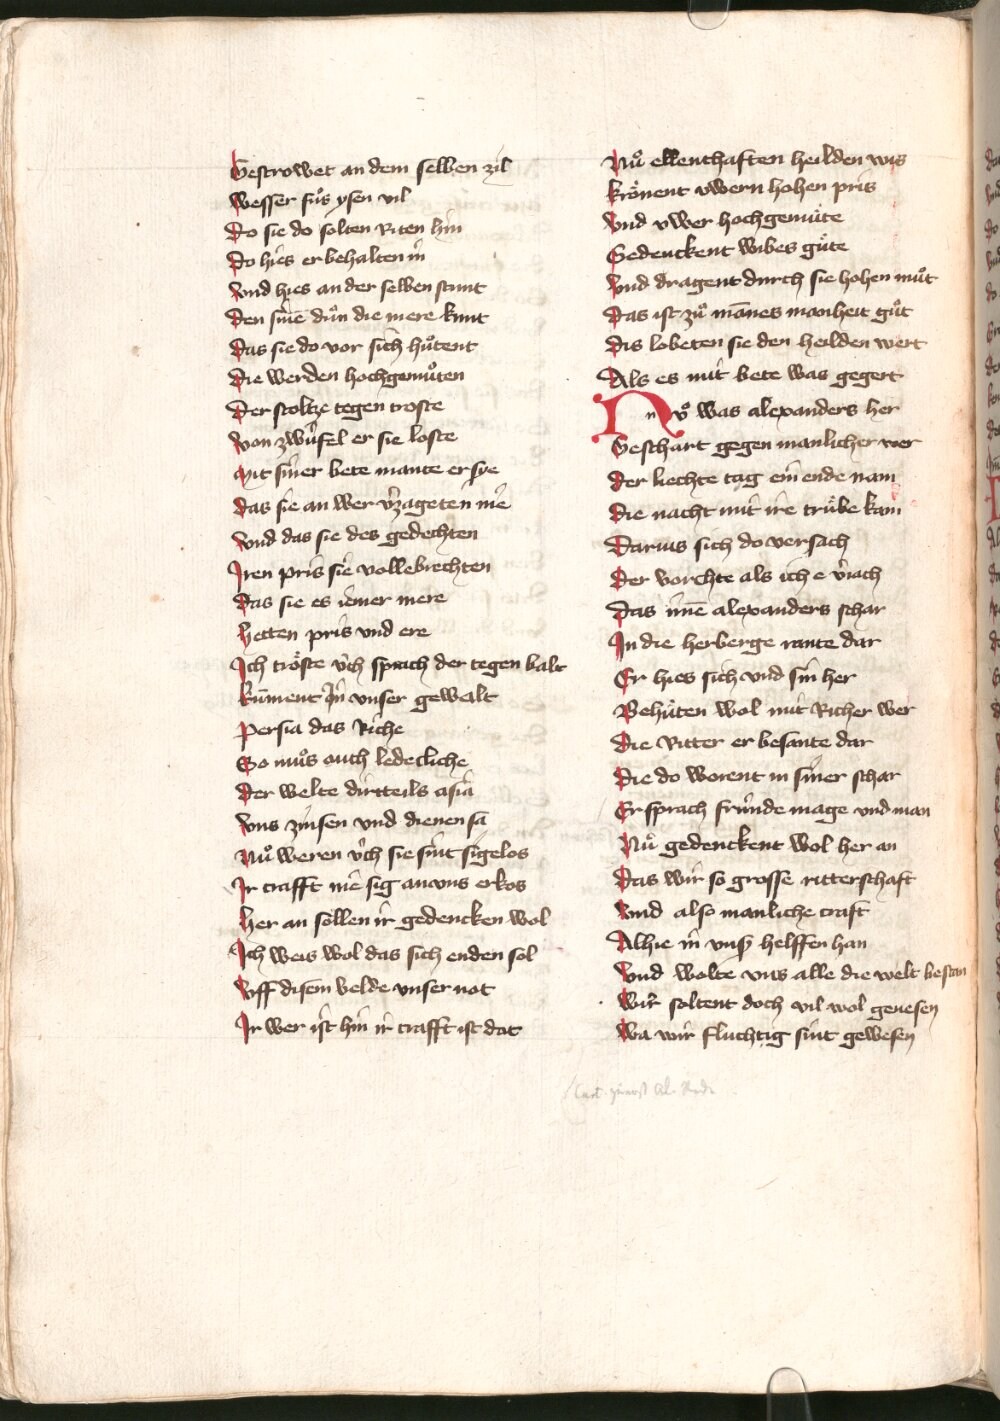 Gestrowet an dem selben zil
Wesser fuͦs ysen vil
Do sie do solten Riten hin
Do hies er behalten in
Vnd hies an der selben stunt
Den sinē duͦn die mere kunt
Das sie do vor sich huͦtent
Die werden hochgemuͦten
Der stoltze tegen troste
Von zwifel er sie loste
Mit siner bete mante er sye
Das sie an wer v̓zageten nie
Vnd das sie des gedechten
Iren pris sie vollebrechten
Das sie es iemer mere
Hetten pris vnd ere
Ich troͤste v́ch sprach der tegen balt
Kūment in vnser gewalt
Persia das Riche
So muͦs ouch ledecliche
Der welte dirtteils asia
Vns zinsen vnd dienen sa
Nuͦ weren v́ch sie sint sigelos
Ir crafft nie sig an vns erkos
Her an soͤllen ir gedencken wol
Ich weis wol das sich enden sol
Vff disem velde vnser not
Ir wer ist hin ir crafft ist dot
Nuͦ ellenthaften heilden wis
Kroͤnent vwern hohen pris
Vnd vwer hochgemuͤte
Gedenckent wibes guͤte
Vnd dragent durch sie hohen muͦt
Das ist zuͦ mānes manheit guͦt
Dis lobeten sie den heilden wert
Als es mit bete was gegert
Nvͦ was alexanders her
Geschart gegen manlicher wer
Der liechte tag ein ende nam
Die nacht mit ire truͤbe kam
Darius sich do versach
Der vorchte als ich e v̓iach
Das ime alexanders schar
In die herberge rante dar
Er hies sich vnd sin her
Behuͤten wol mit Richer wer
Die Ritter er besante dar
Die do worent in siner schar
Er sprach fruͤnde mage vnd man
Nuͦ gedenckent wol her an
Das wir so grosse ritterschaft
Vnd also manliche craft
Alhie in vnsz helffen han
Vnd wolte vns alle die welt bestan
Wir soltent doch vil wol genesen
Wa wir fluchtig sint gewesen